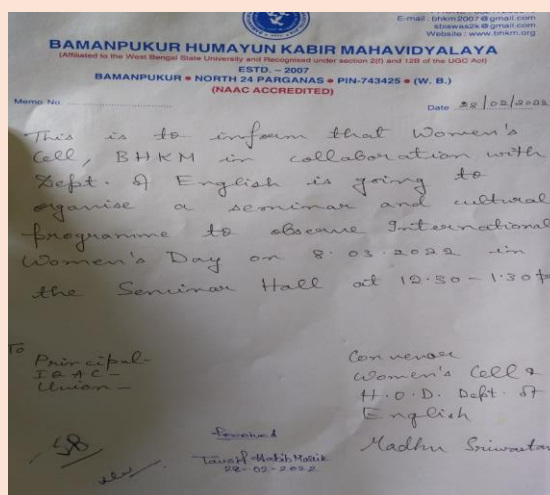 E-mail: bhkm2007@gmail.com
sbiswas2k@gmail.com
Website: www.bhkm.org
BAMANPUKUR HUMAYUN KABIR MAHAVIDYALAYA
(Affiliated to the West Bengal State University and Recognised under section 2(f) and 12B of the UGC Act)
ESTD. – 2007
BAMANPUKUR ● NORTH 24 PARGANAS ● PIN-743425 ● (W. B.)
(NAAC ACCREDITED)
Memo No
Date 28/02/2022
This is to inform that Women's
Cell, BHKM in collaboration with
Dept. of English is going to
organise a seminar and cultural
programme to observe International
Women's Day on 8.03.2022 in
the Seminar Hall at 12.30-1.30
To
Principal-
IQAC-
Union-
Convenor
Women's Cell &
H.O.D. Dept. of
English
Madhu
Received
Habib
28-02-2022